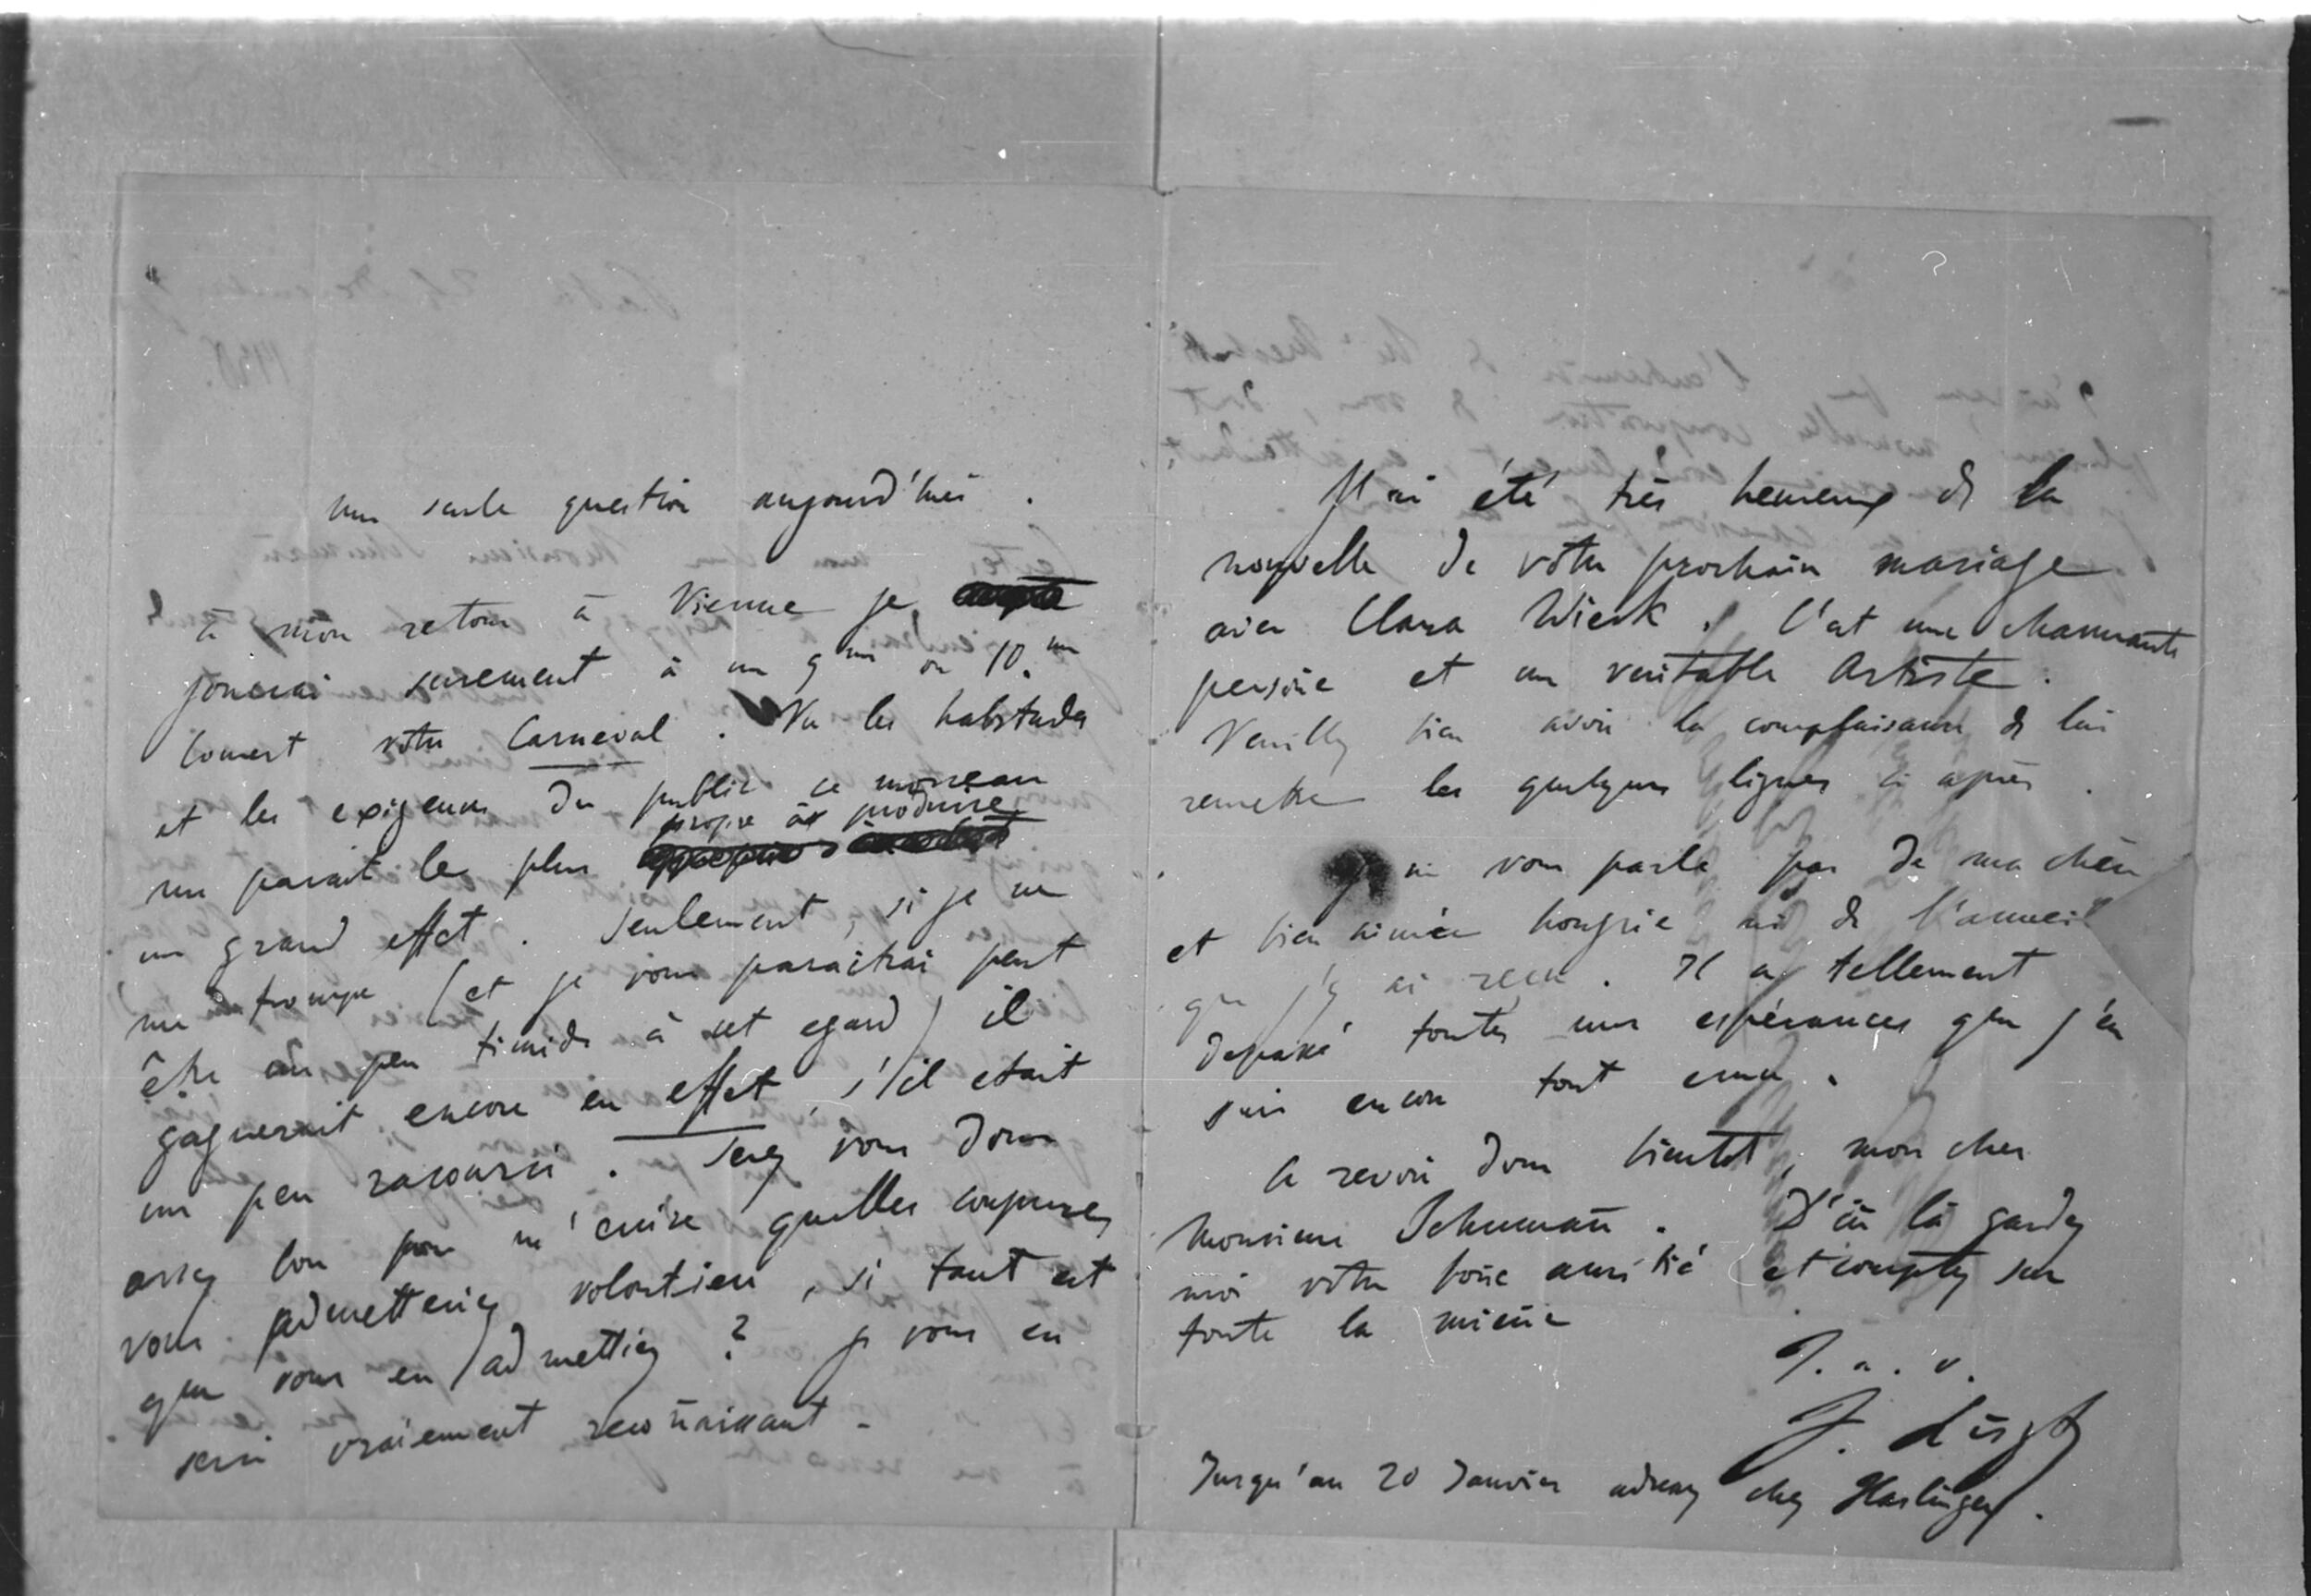 une seule question aujourd'hui .
à mon retour à Vienne je
jouerai surement à un 9me ou 10me
Concert votre Carneval . Vu les habitudes
et les exigences du public ce morceau
propre à produire
me parait le plus
un grand effet . Seulement , si je ne
me trompe (et je vous paraitrai peut
être un peu timide à cet egard) il
gagnerait encore en effet , s'il etait
un peu racourci . Serez vous donc
assez bon pour m'écrire quelles coupures
vous admetteriez volontiers , si tant est
que vous en admettiez ? je vous en
serai vraiement reconaissant –
J'ai été très heureux de la
nouvelle de votre prochain mariage
avec Clara Wieck . C'est une charmante
persone et un veritable Artiste .
Veuillez bien avoir la complaisance de lui
remettre les quelques lignes ci après .
Je ne vous parle pas de ma chère
et bien aimée hongrie ni de l'acueil
que j'y ai recu . Il a tellement
depassé toutes mes espérances que j'en
suis encore tout emu .
A revoir donc bientot , mon cher
Monsieur Schumañ . D'ici là gardez
moi votre bone amitié et comptez sur
toute la miene
T. a. v.
F. Liszt
Jusqu'au 20 Janvier adressez chez Haslinger .